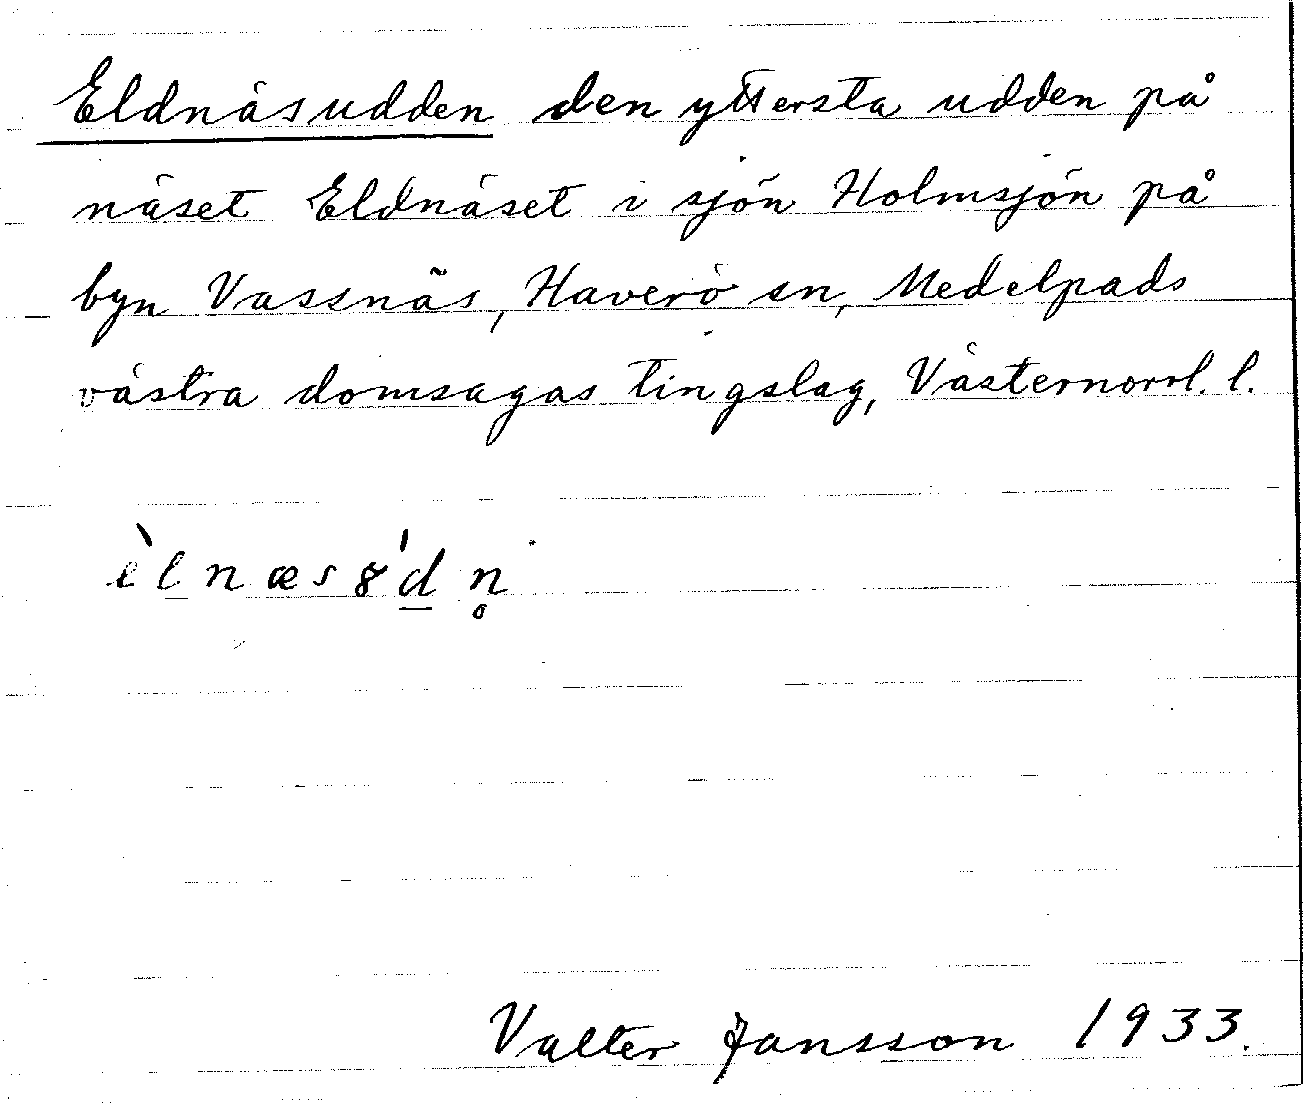 Eldnäsudden den yttersta udden på
näset Eldnäset i sjön Holmsjön på
byn Vassnäs, Haverö sn, Medelpads
västra domsagas tingslag, Västernorrl. l.
èlnæs8'd n̥
Valter Jansson 1933.